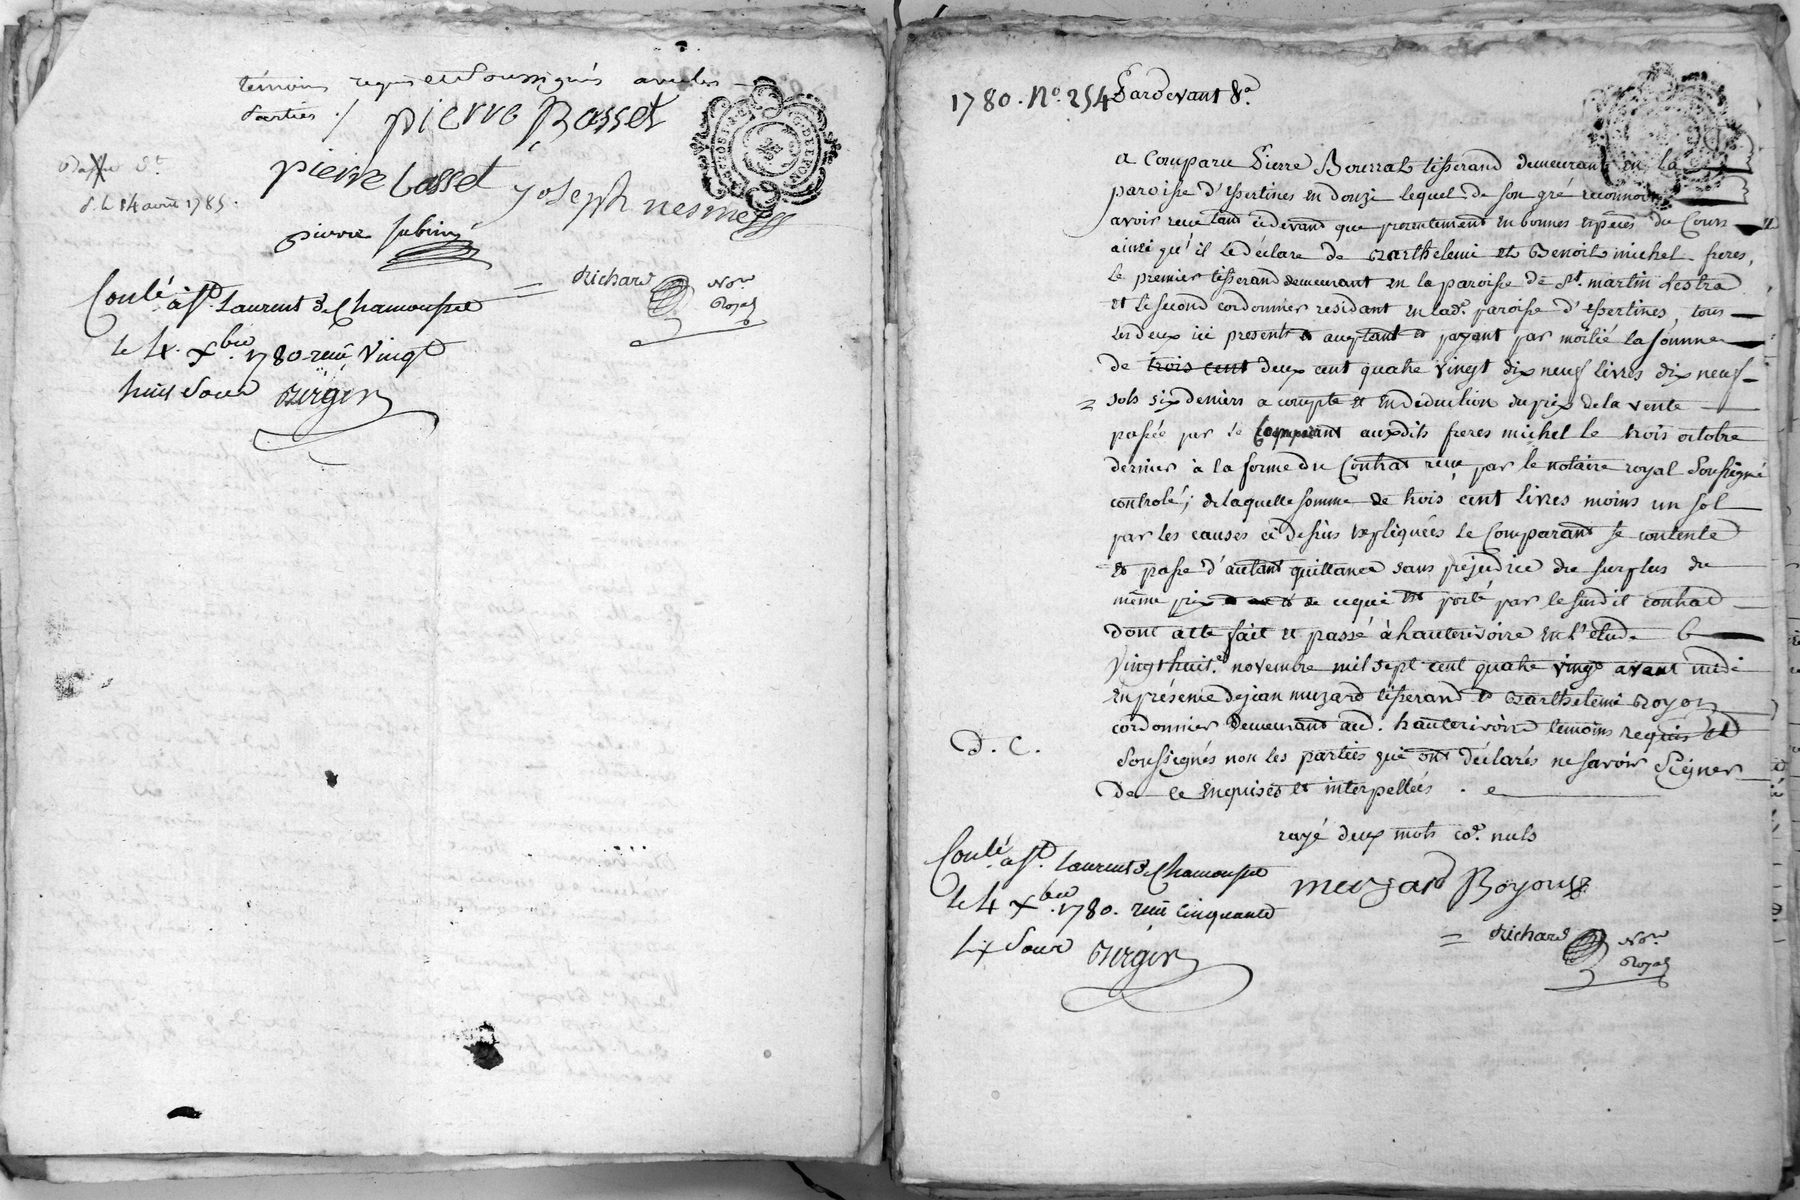 témoins requis et soussignés avec les
parties ./.
pierre Basset
pierre basset
joseph nesme
pierre subrin
Richard Nore
Royal
d. le 14 aout 1785.
Conlé à St. Laurent de Chamousset
le 4. Xbre. 1780. reçu vingt
huit sous Bergir
1780. No. 254
Pardevant &a.
a Comparu Pierre Bourrat tisserand demeurant en la
paroisse d'Essertines en donzi lequel de son gré reconnoit
avoir reçu tant cidevant que presentement en bonnes especes du Cours
ainsi qu'il le déclare de Barthelemi et Benoit michel freres,
le premier tisserand demeurant en la paroisse de St. martin Lestra
et le second cordonnier residant en lad. paroisse d'Essertines, tous
les deux ici present et acceptant et payant par moitié la somme
de trois cent deux cent quatre vingt dix neuf livres dix neuf
sols six deniers a compte et en deduction du prix de la vente
passée par le Comparant auxdits freres michel le trois octobre
dernier à la forme du Contrat reçu par le notaire royal soussigné
controlé; de laquelle somme de trois cent livres moins un sol
par les causes ci dessus expliquées le Comparant se contente
et passe d'autant quittance sans prejudice du surplus du
même prix et de ce qui est porté par le susdit contrat
dont acte fait et passé à hauterivoire en l'etude le
vingt huit. novembre mil sept cent quatre vingt avant midi
en présence de jean muzard tisserand et Barthelemi Boyon
cordonnier demeurant aud. hauterivoire temoins requis et
soussignés non les parties qui ont déclarés ne savoir signer
de ce enquises et interpellées.
D. C.
rayé deux mots co. nuls
muzard Boyon
Richard Nore
Royal
Conlé à St. Laurent de Chamousset
le 4 Xbre. 1780. reçu cinquante
six sous Bergir